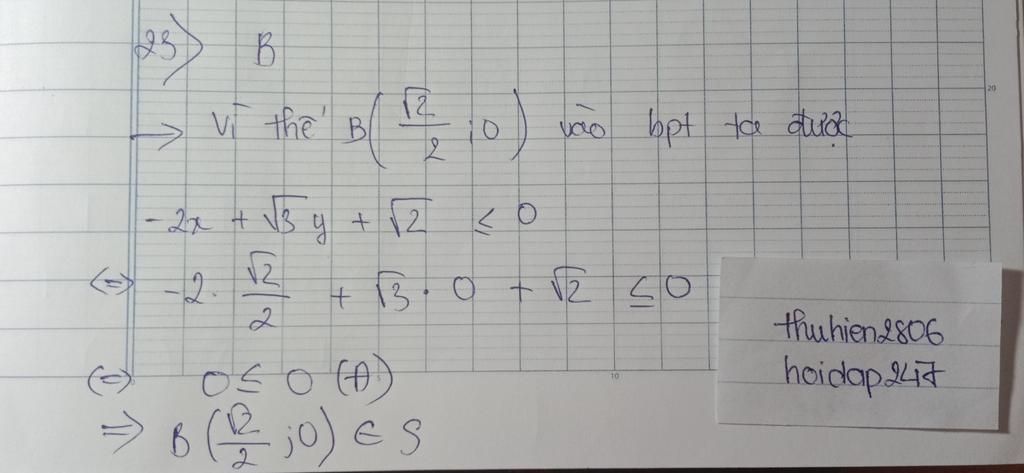 23) B
→ Vì thế B(√2/2 ; 0) vào bpt ta được
-2x + √3 y + √2 ≤ 0
(=) -2. √2/2 + √3 . 0 + √2 ≤ 0
(=) 0 ≤ 0 (Đ)
=> B (√2/2 ; 0) ∈ S
thuhien2806
hoidap247
20
10